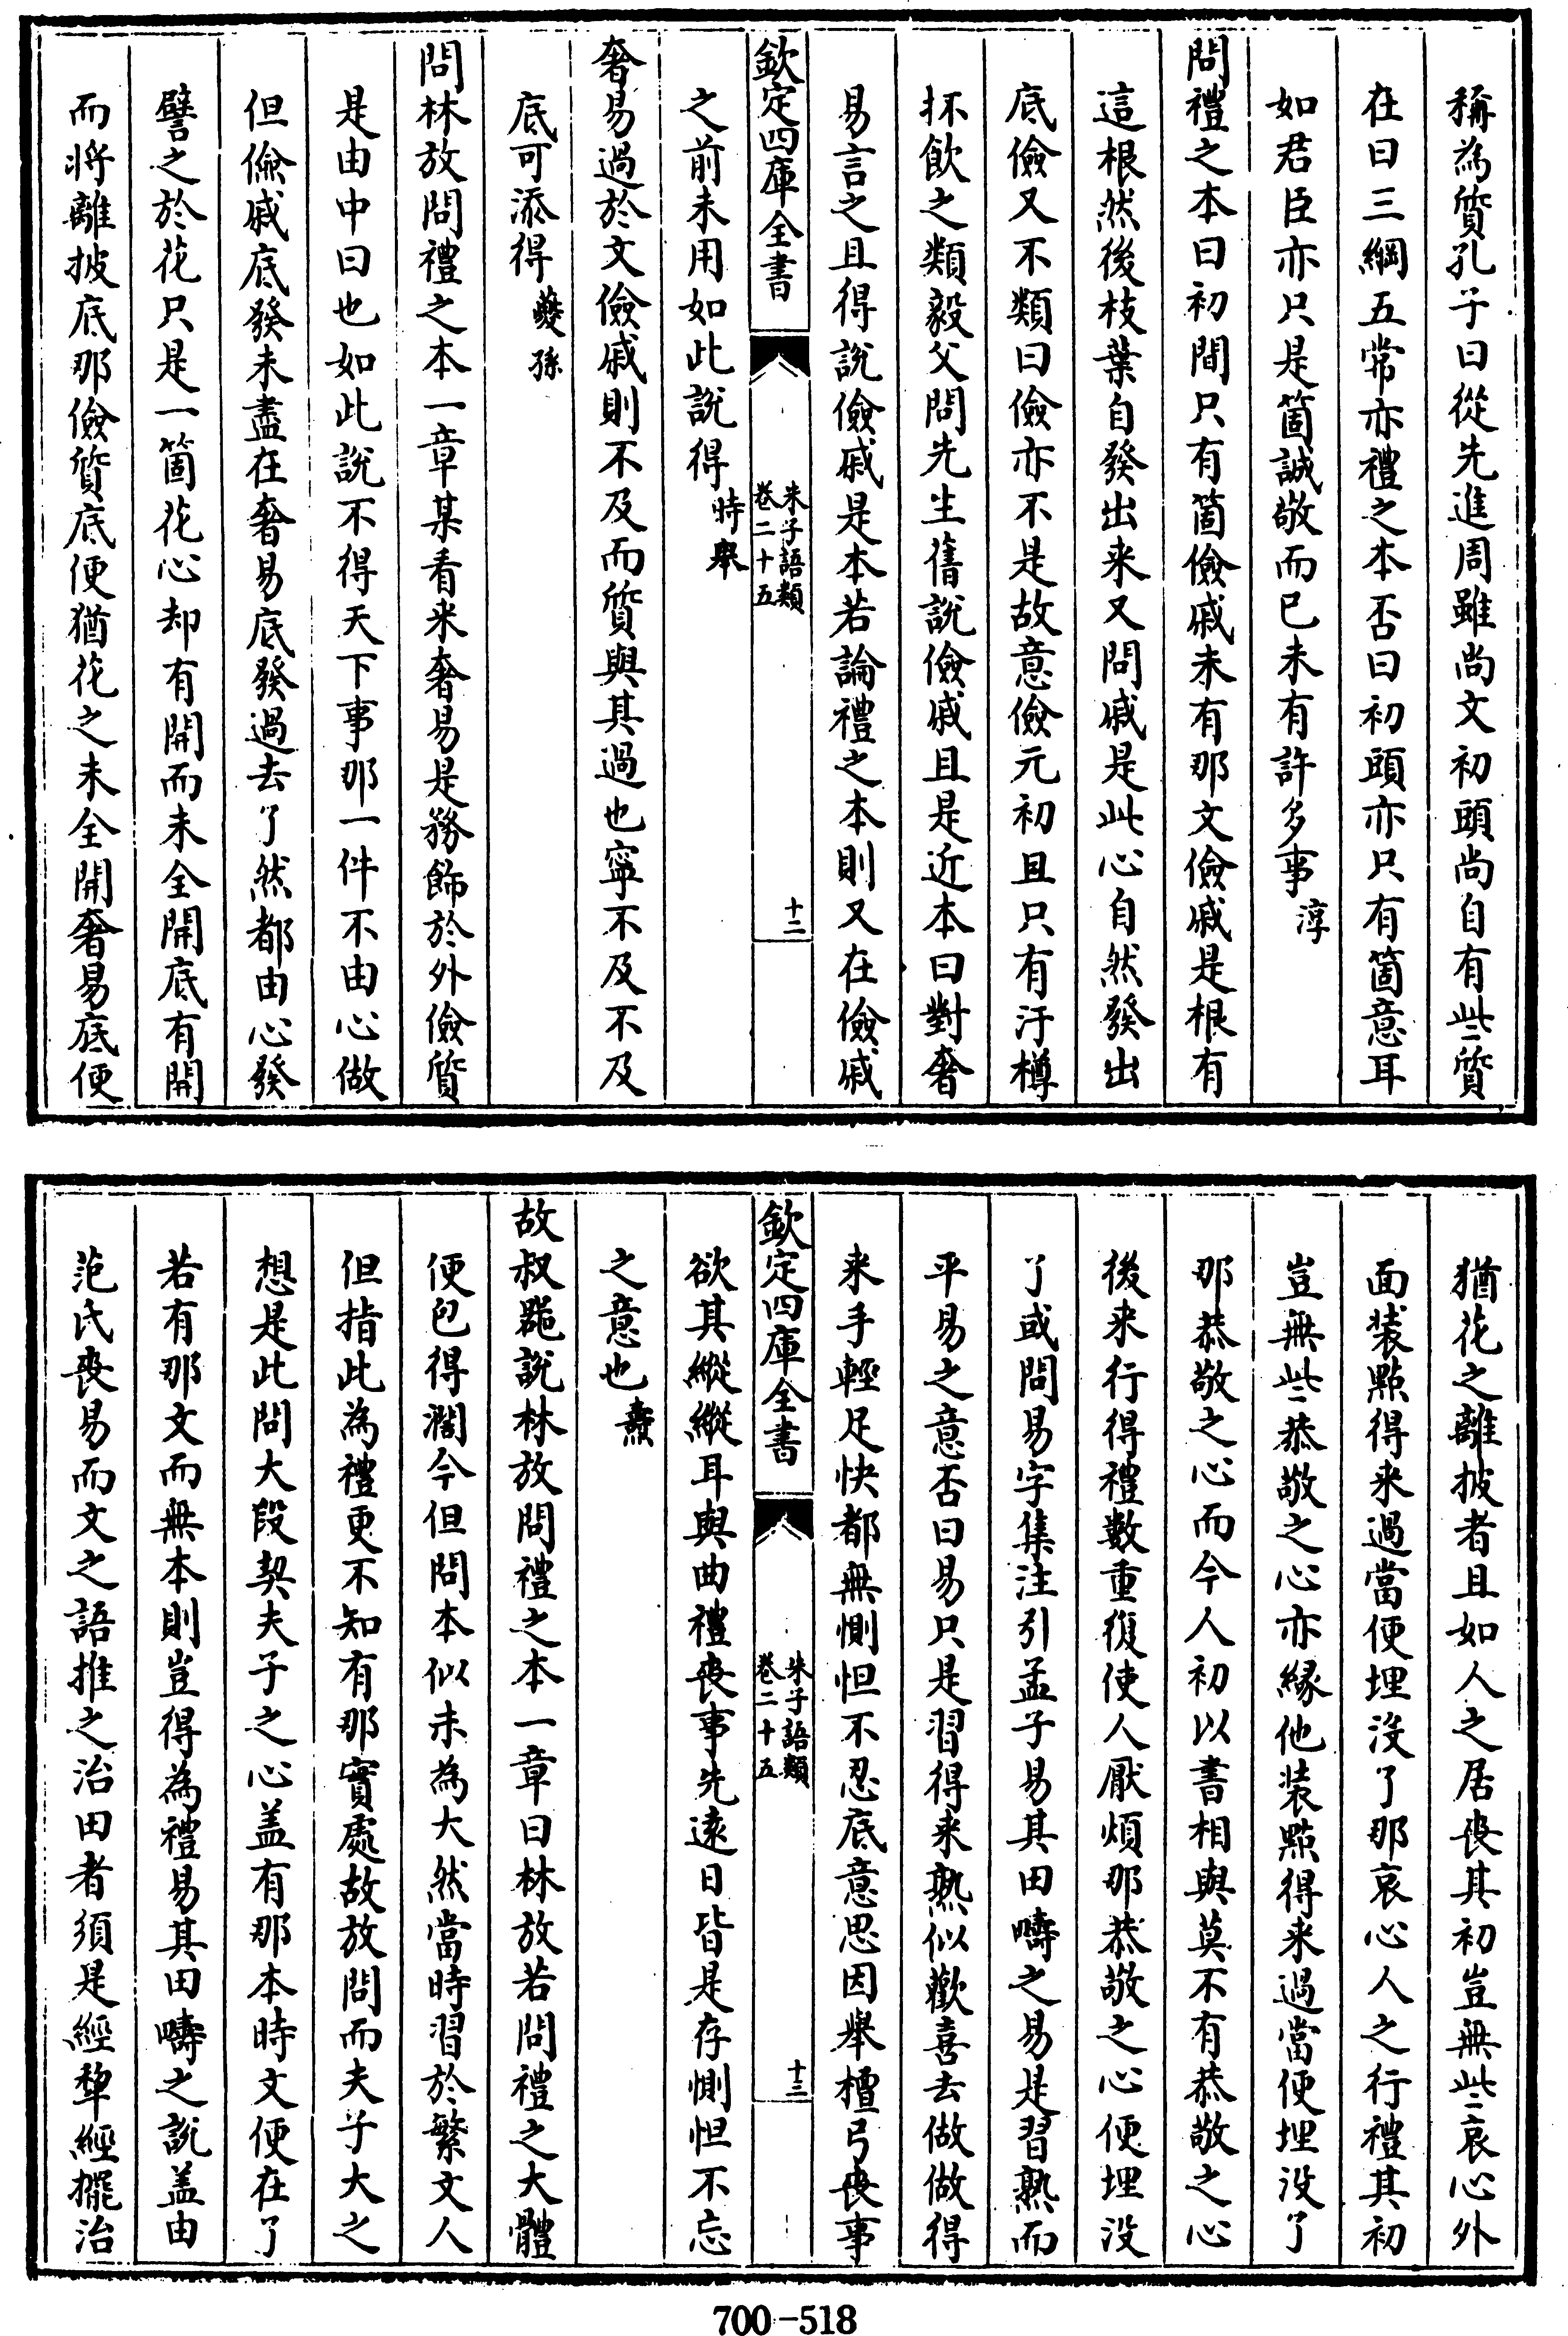 稱為質孔子曰從先進周雖尚文初頭尚自有些質
在曰三綱五常亦禮之本否曰初頭亦只有箇意耳
如君臣亦只是箇誠敬而已未有許多事淳
問禮之本曰初間只有箇儉戚未有那文儉戚是根有
這根然後枝葉自發出来又問戚是此心自然發出
底儉又不類曰儉亦不是故意儉元初且只有汙樽
抔飲之類毅父問先生舊説儉戚且是近本曰對奢
易言之且得説儉戚是本若論禮之本則又在儉戚
欽定四庫全書
朱子語類
卷二十五
十二
之前未用如此説得時舉
奢易過於文儉戚則不及而質與其過也寧不及不及
底可添得䕫孫
問林放問禮之本一章某看来奢易是務飾於外儉質
是由中曰也如此説不得天下事那一件不由心做
但儉戚底發未盡在奢易底發過去了然都由心發
譬之於花只是一箇花心却有開而未全開底有開
而將離披底那儉質底便猶花之未全開奢易底便
猶花之離披者且如人之居喪其初豈無些哀心外
面装㸃得来過當便埋沒了那哀心人之行禮其初
豈無些恭敬之心亦緣他装㸃得来過當便埋没了
那恭敬之心而今人初以書相與莫不有恭敬之心
後来行得禮數重復使人厭煩那恭敬之心便埋没
了或問易字集注引孟子易其田疇之易是習熟而
平易之意否曰易只是習得来熟似歡喜去做做得
来手輕足快都無惻怛不忍底意思因舉檀弓喪事
欽定四庫全書
朱子語類
卷二十五
十三
欲其縱縱耳與曲禮喪事先遠日皆是存惻怛不忘
之意也燾
故叔器説林放問禮之本一章曰林放若問禮之大體
便包得濶今但問本似未為大然當時習於繁文人
但指此為禮更不知有那實處故放問而夫子大之
想是此問大段契夫子之心盖有那本時文便在了
若有那文而無本則豈得為禮易其田疇之説盖由
范氏喪易而文之語推之治田者須是經犂經擺治
700-518